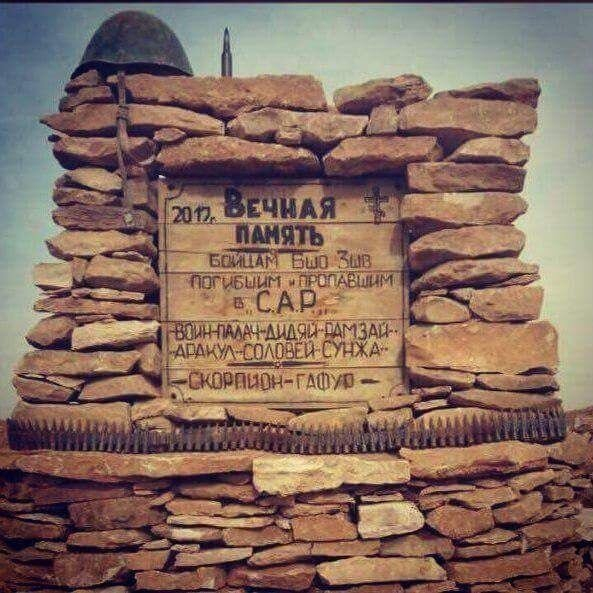 2017г. ВЕЧНАЯ
ПАМЯТЬ
БОЙЦАМ 6ШО 3ШВ
ПОГИБШИМ И ПРОПАВШИМ
В „С.А.Р„
ВОИН-ПАЛАЧ-ДИДЯЙ-РАМЗАЙ-
АРАКУЛ-СОЛОВЕЙ-СУНЖА-
-СКОРПИОН-ГАФУР-